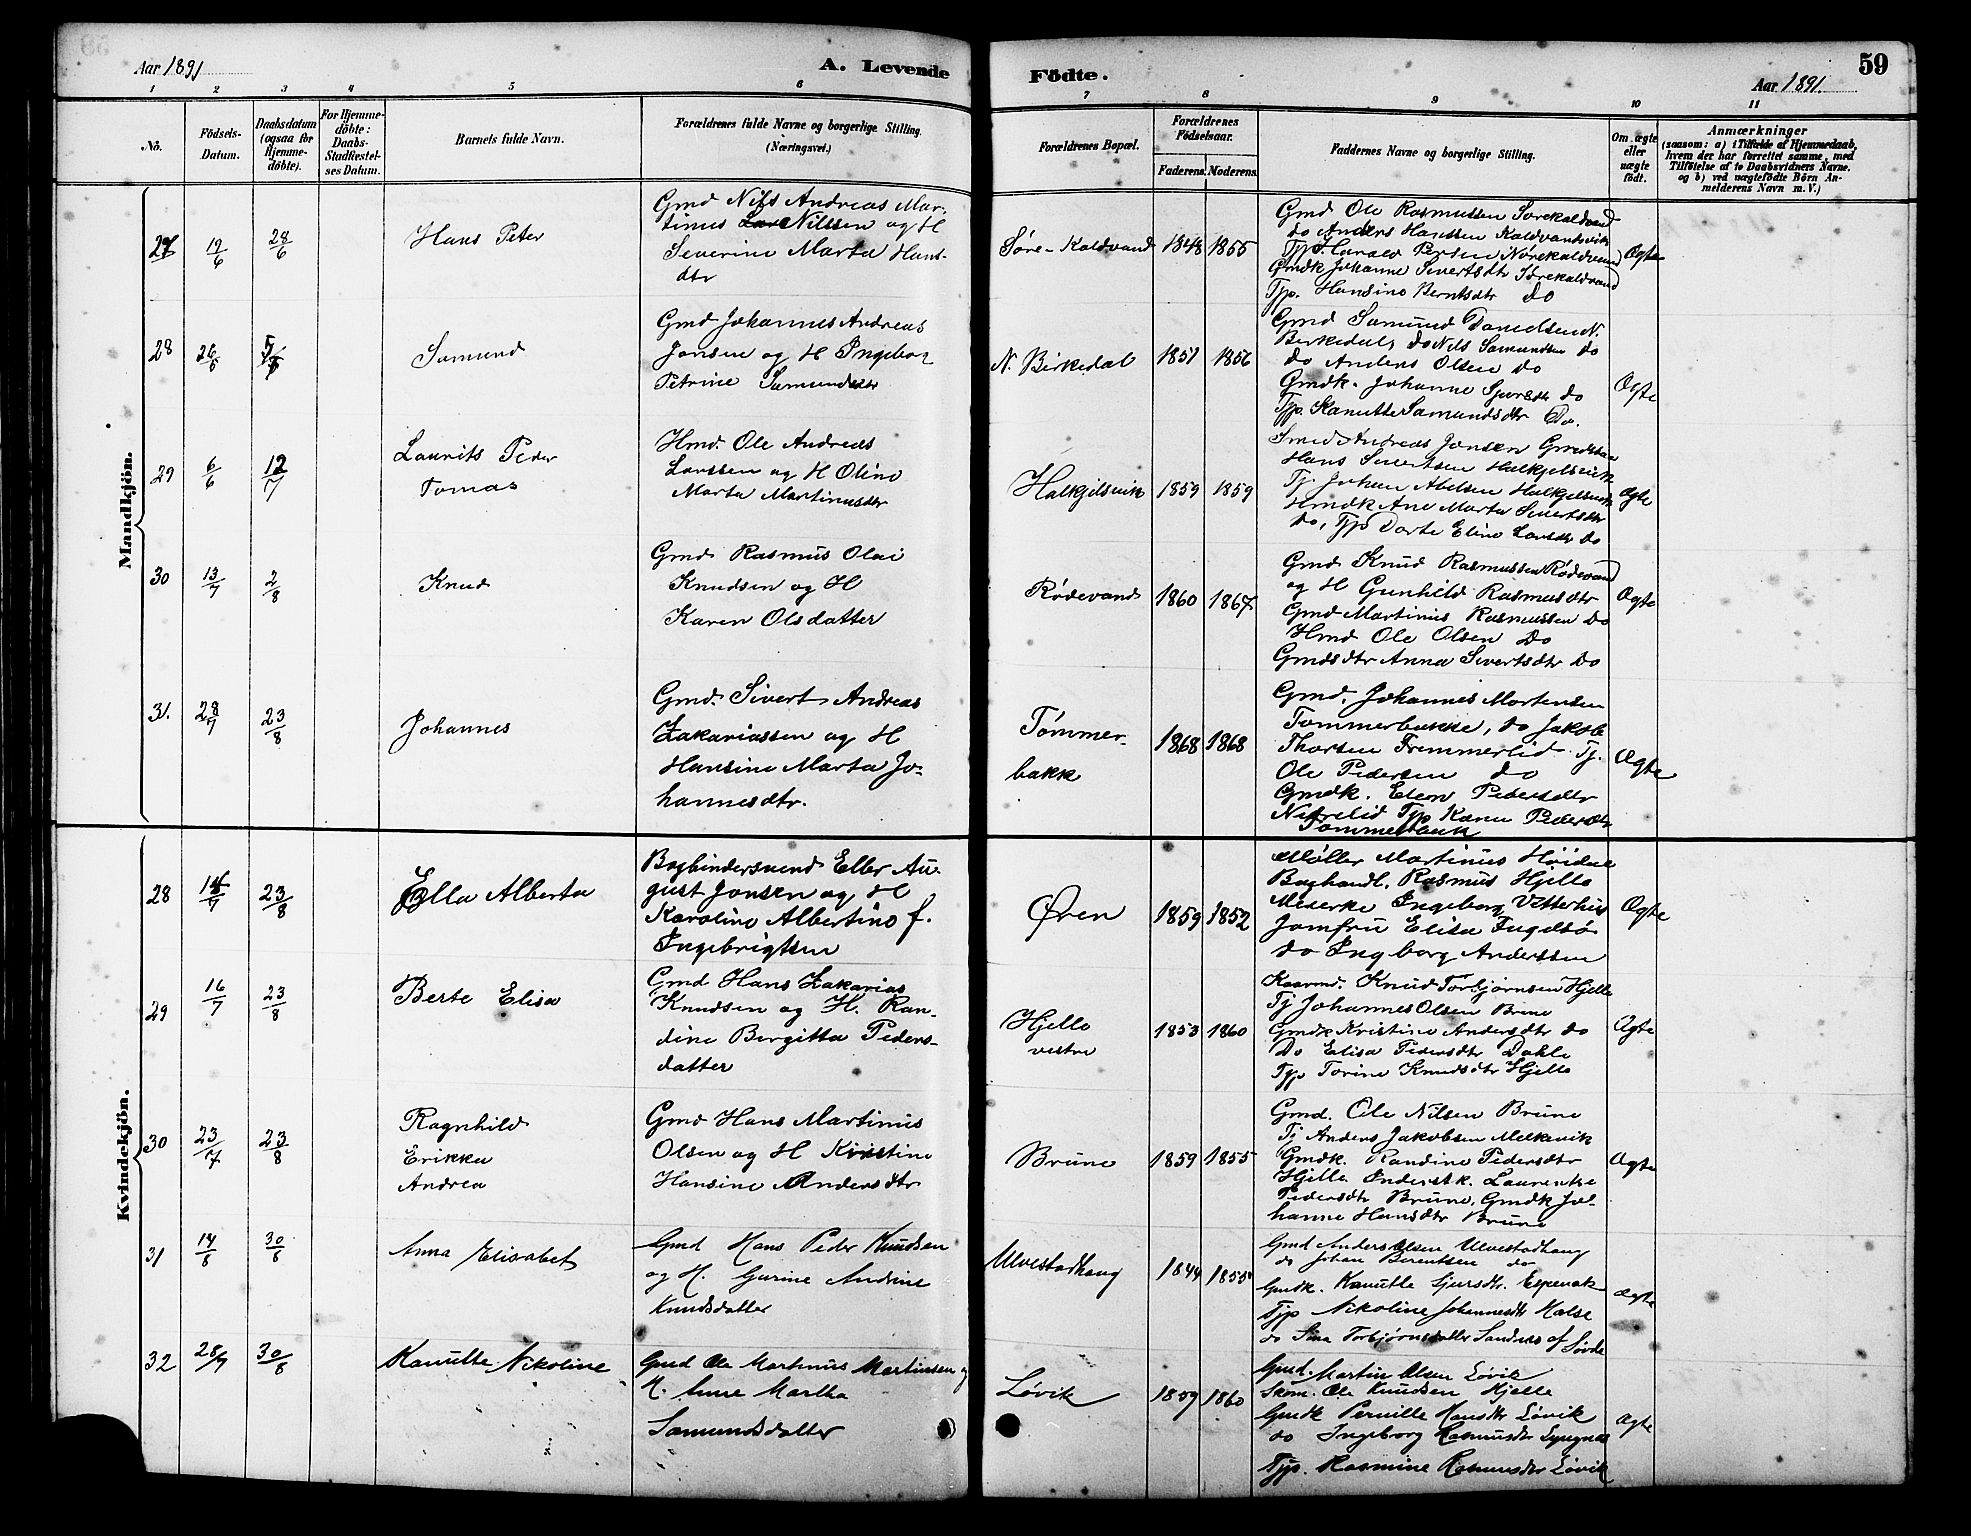 Aar 1891
A. Levende
Födte.
Aar 1891.
59
1 2 3 4 5 6 7 8 9 10 11
No.
Födsels-
Datum.
Daabsdatum
(ogsaa for
Hjemme-
döbte).
For Hjemme-
döbte:
Daabs-
Stadfæstel-
ses Datum.
Barnets fulde Navn.
Forældrenes fulde Navne og borgerlige Stilling.
(Næringsvei.)
Forældrenes Bopæl.
Forældrenes
Födselsaar.
Faderens. Moderens.
Faddernes Navne og borgerlige Stilling.
Om ægte
eller
uægte
födt.
Anmærkninger
(saasom: a) i Tilfælde af Hjemmedaab,
hvem der har forrettet samme, med
Tilföielse af to Daabsvidners Navne.
og b) ved uægtefödte Börn An-
melderens Navn m. V.)
Mandkjön.
27 12/6 28/6
Hans Peter
Gmd Nils Andreas Mar-
tinus Nilssen og H
Severine Marta Hans-
dtr
Søre-Kaldvand 1848 1855
Gmd Ole Rasmussen Sørekaldvand
do Anders Hanssen Kaldvandsvik
Nørekaldvand
Gmdk Johanne Sivertsdtr Sørekaldvand
Tjp. Hansine Berntsdtr do
Ægte
28
Samund
Gmd Johannes Andreas
Jonsen og H Ingebor
Petrine Samundsdtr
N. Birkedal 1851 1856
Gmd Samund Danielsen N.
Birkedal, do Nils Samundsen do
do Anders Olsen do
Gmdk. Johanne Sjursdtr do
Tjp. Kanutte Samundsdtr Do.
Ægte
29 6/6 12/7
Laurits Peder
Tomas
Hmd. Ole Andreas
Larssen og H Oline
Marta Martinusdtr
Halkjelsvik 1859 1859
Smed Andreas Jonsen
Hans Sivertsen Halkjelsvik
Tj. Johan Abelsen Halkjelsvik
Hmdk Ane Marta Sivertsdtr
do, Tjp Dorte Eline Larsdtr do
Ægte
30 13/7 2/8
Knud
Gmd Rasmus Olai
Knudsen og H
Karen Olsdatter
Rødevand 1860 1867
Gmd Knud Rasmussen Rødevand
og H Gunhild Rasmusdtr
Gmd Martinus Rasmussen Do
Hmd Ole Olsen Do
Gmdsdtr Anna Sivertsdtr do
Ægte
31. 28/7 23/8
Johannes
Gmd. Sivert Andreas
Zakariassen og H
Hansine Marta Jo-
hannesdtr.
Tømmer-
bakk 1868 1868
Gmd. Johannes Mortensen
Tømmerbakke, do Jakob
Thorsen Fremmerlid Tj.
Ole Pedersen do
Gmdk. Elen Pedersdtr
Nedrelid Tjp Karen Pedersdtr
Tømmerbakk
Ægte
Kvindekjön.
28 14/7 23/8
Ella Alberta
Bogbindersvend Eller Au-
gust Jonsen og H
Karoline Albertine f.
Ingebrigtsen
Øren 1859 1852
Møller Martinus Høidal
Boghandl. Rasmus Hjelle
Meierke Ingeborg
Jomfru Elisa
do Ingeborg Anderssen
Ægte
29 16/7 23/8
Berte Elisa
Gmd Hans Zakarias
Knudsen og H. Ran-
dine Birgitta Peders-
datter
Hjelle
vestre 1853 1860
Kaarmd. Knud Torbjørnsen Hjelle
Tj Johannes Olsen Brune
Gmdk Kristine Andersdtr do
Do Elisa Pedersdtr Dahle
Tjp Torine Knudsdtr Hjelle
Ægte
30 23/7 23/8
Ragnhild
Erikka
Andrea
Gmd Hans Martinus
Olsen og H Kristine
Hansine Andersdtr
Brune 1859 1855
Gmd. Ole Nilsen Brune
Tj Anders Jakobsen Melkevik
Gmdk. Randine Pedersdtr
Hjelle Inderstk. Laurentse
Pedersdtr Brune, Gmdk Jo-
hanne Hansdtr Brune
Ægte
31 14/8 30/8
Anna Elisabet
Gmd Hans Peder Knudsen
og H. Gurine Andrine
Knudsdatter
Ulvestadhaug 1844 1855
Gmd Anders Olsen Ulvestadhaug
do Johan Berentsen do
Gmdk. Kanutte Sjursdtr. Espenak
Tjp Nikoline Johannesdtr Halse
do Sina Torbjørnsdatter Sandness af Søvde
Ægte
32 28/7 30/8
Kanutte Nikoline
Gmd Ole Martinus Martinsen og
H. Anne Martha
Samundsdatter
Løvik 1859 1860
Gmd. Martin Olsen Løvik
Skom. Ole Knudsen Hjelle
Gmdk Pernille Hansdtr Løvik
do Ingeborg Rasmusdtr
Tjp. Rasmine Rasmusdtr Løvik
Ægte